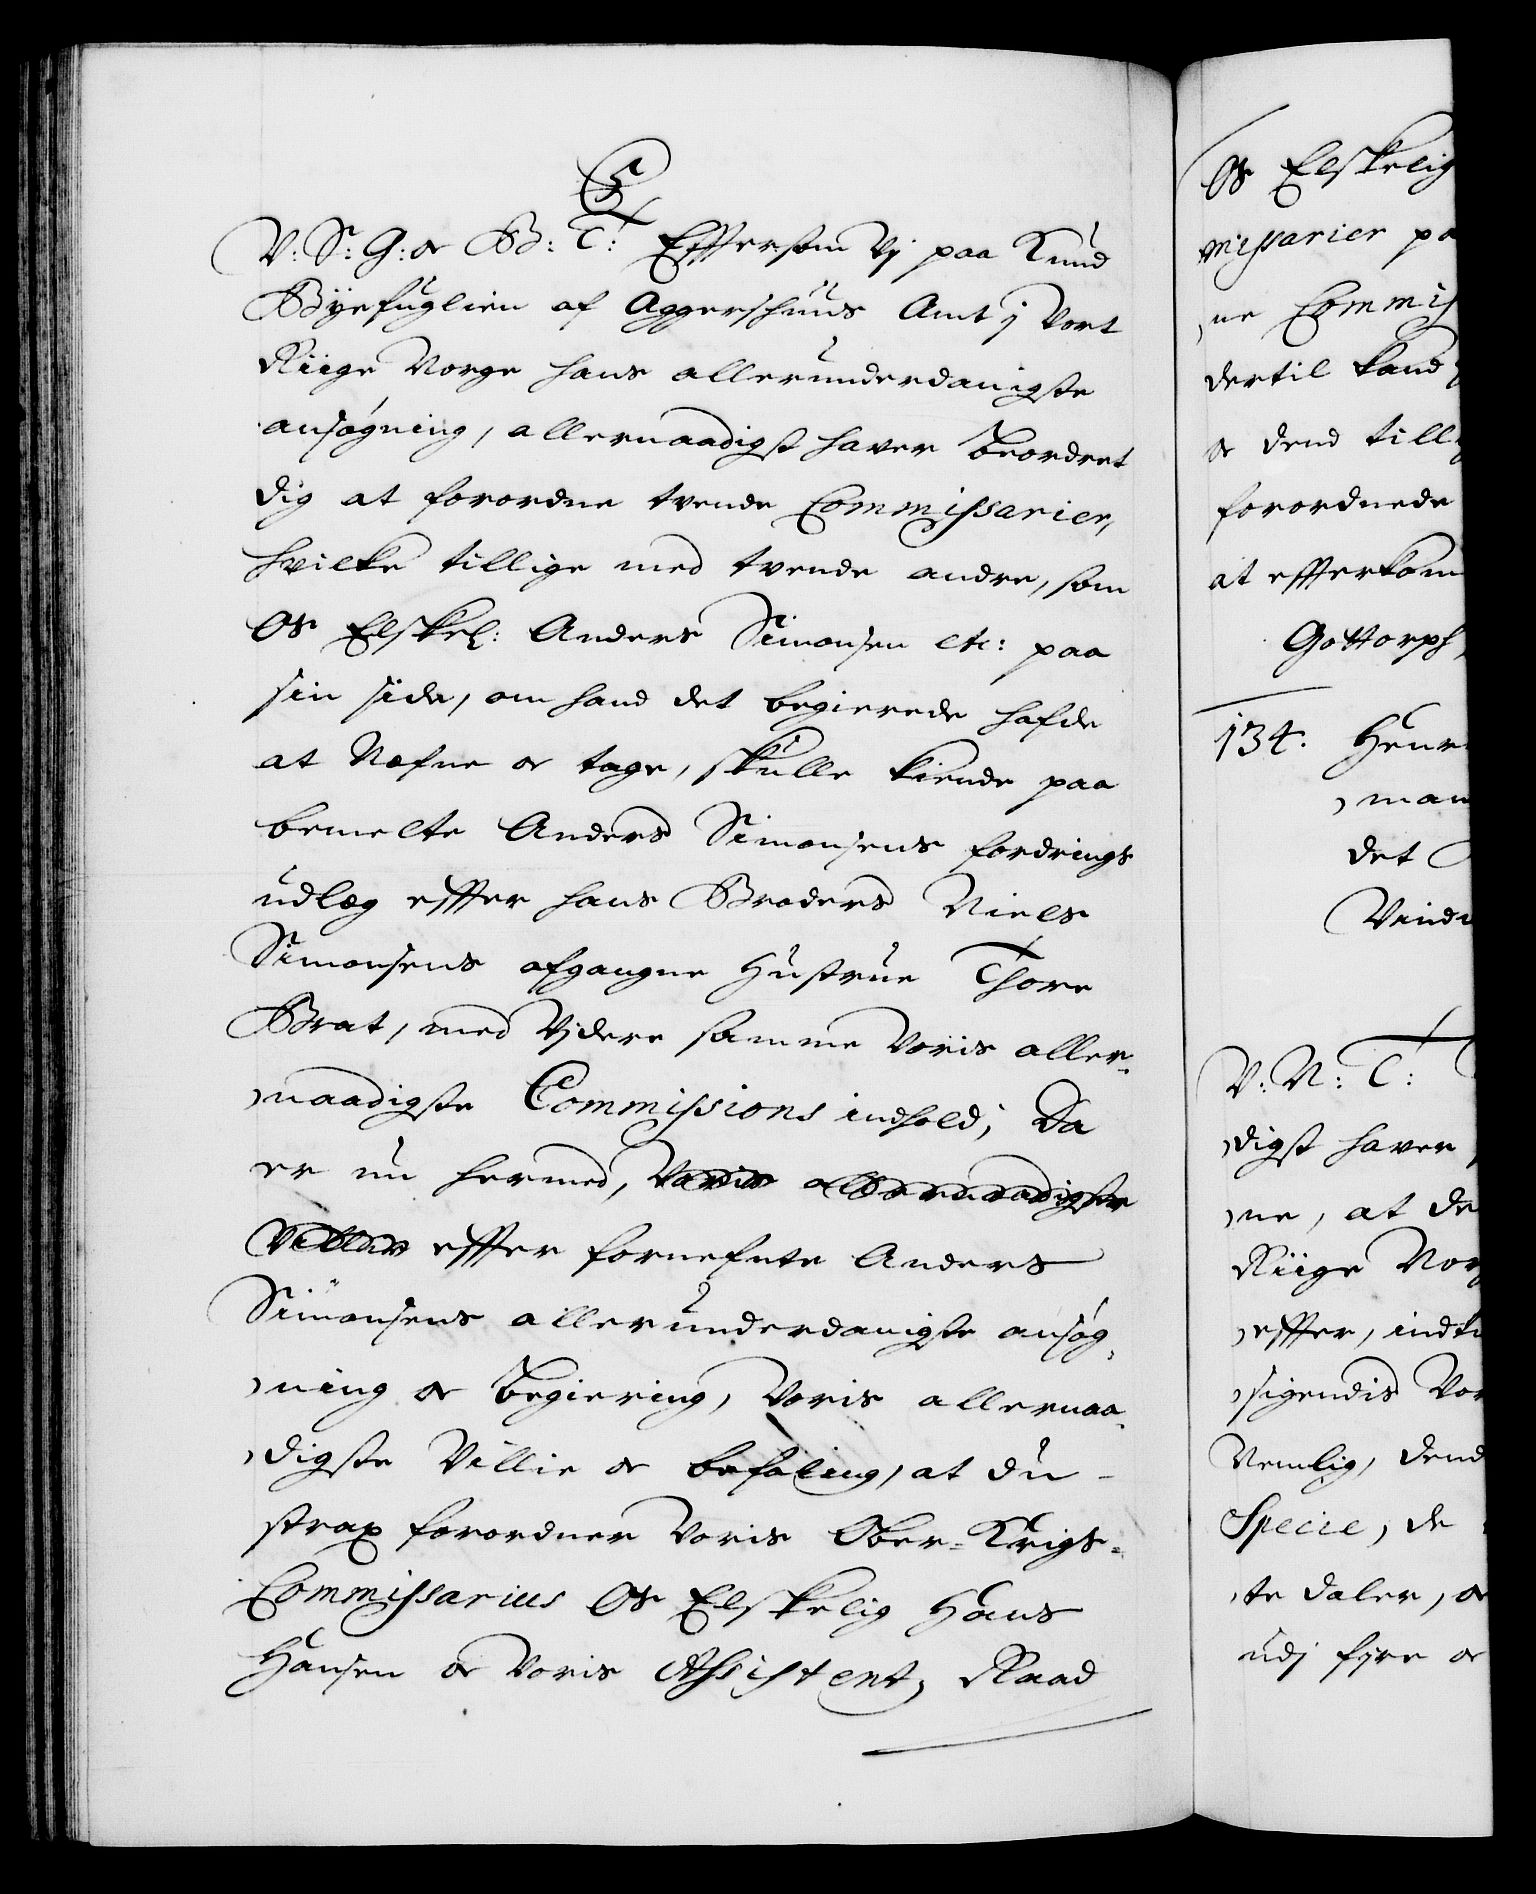 C5
V: S: G: oc B: T: Effersom Vj paa Knud
Byefuglien af Aggershuus Amt j Vort
Riige Norge hans allerunderdanigste
ansøgning, allernaadigst haver beordret
dig at forordne tvende Commissarier,
hvilke tillige med tvende andre, som
Os Elskel: Anders Simonsen etc: paa
sin side, om hand det begierede hafde
at Nefne oc tage, skulle kiende paa
bemelte Anders Simonsens fordrings
udleg effter hans Broders Niels
Simonsens afgangne Hustrue Thore
Brat, med Vjdere samme Voris aller-
naadigste Commissions indhold; Da
er nu hermed, Voris allernaadigste
Villie effter fornefnte Anders
Simonsens allerunderdanigste ansøg-
ning oc begiering, Voris allernaa-
digste Villie oc befaling, at du
strax forordner Voris Ober-Krigs-
Commissarius Os Elskelig Hans
Hansen oc Voris Assistent, Raad
Os Elskelig
missarier pa
ne Commis
dertil kand
oc dend till
forordnede
at effterkom
Gottorph,
134. Henr
man
det
Vind
V: N: T:
digst haver
ne, at de
Riige Nor
effter, indk
sigendis Vor
Nemlig, dend
Specie, de
te daler, oc
udj fyre oc